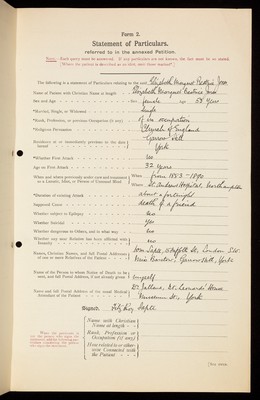 Form 2.
Statement of Particulars.
referred to in the annexed Petition.
[Where the patient is described as an idiot omit those marked*.]
The following is a statement of Particulars relating to the said Elizabeth Margaret Beatrice
Name of Patient with Christian Name at length Elizabeth Margaret Beatrice
Sex and Age female 58 Years
*Married, Single, or Widowed single
*Rank, Profession, or previous Occupation (if any) of no occupation
*Religious Persuasion Church of England
Residence at or immediately previous to the date hereof
York
*Whether First Attack no
Age on First Attack 32 Years
When and where previously under care and treatment as a Lunatic, Idiot, or Person of Unsound Mind
When from 1883-1890
Where St. Andrews Hospital, Northampton
*Duration of existing Attack about a fortnight
Supposed Cause death of a friend
Whether subject to Epilepsy no
Whether Suicidal yes
Whether dangerous to Others, and in what way no
Whether any near Relative has been afflicted with Insanity no
Names, Christian Names, and full Postal Addresses of one or more Relatives of the Patient
London S.W.
York
Name of the Person to whom Notice of Death to be sent, and full Postal Address, if not already given myself
Name and full Postal Address of the usual Medical Attendant of the Patient
Dr. St. Leonards House
Museum St. York
Signed Fitz Roy
Name with Christian Name at length
Rank, Profession, or Occupation (if any)
How related to or otherwise Connected with the Patient